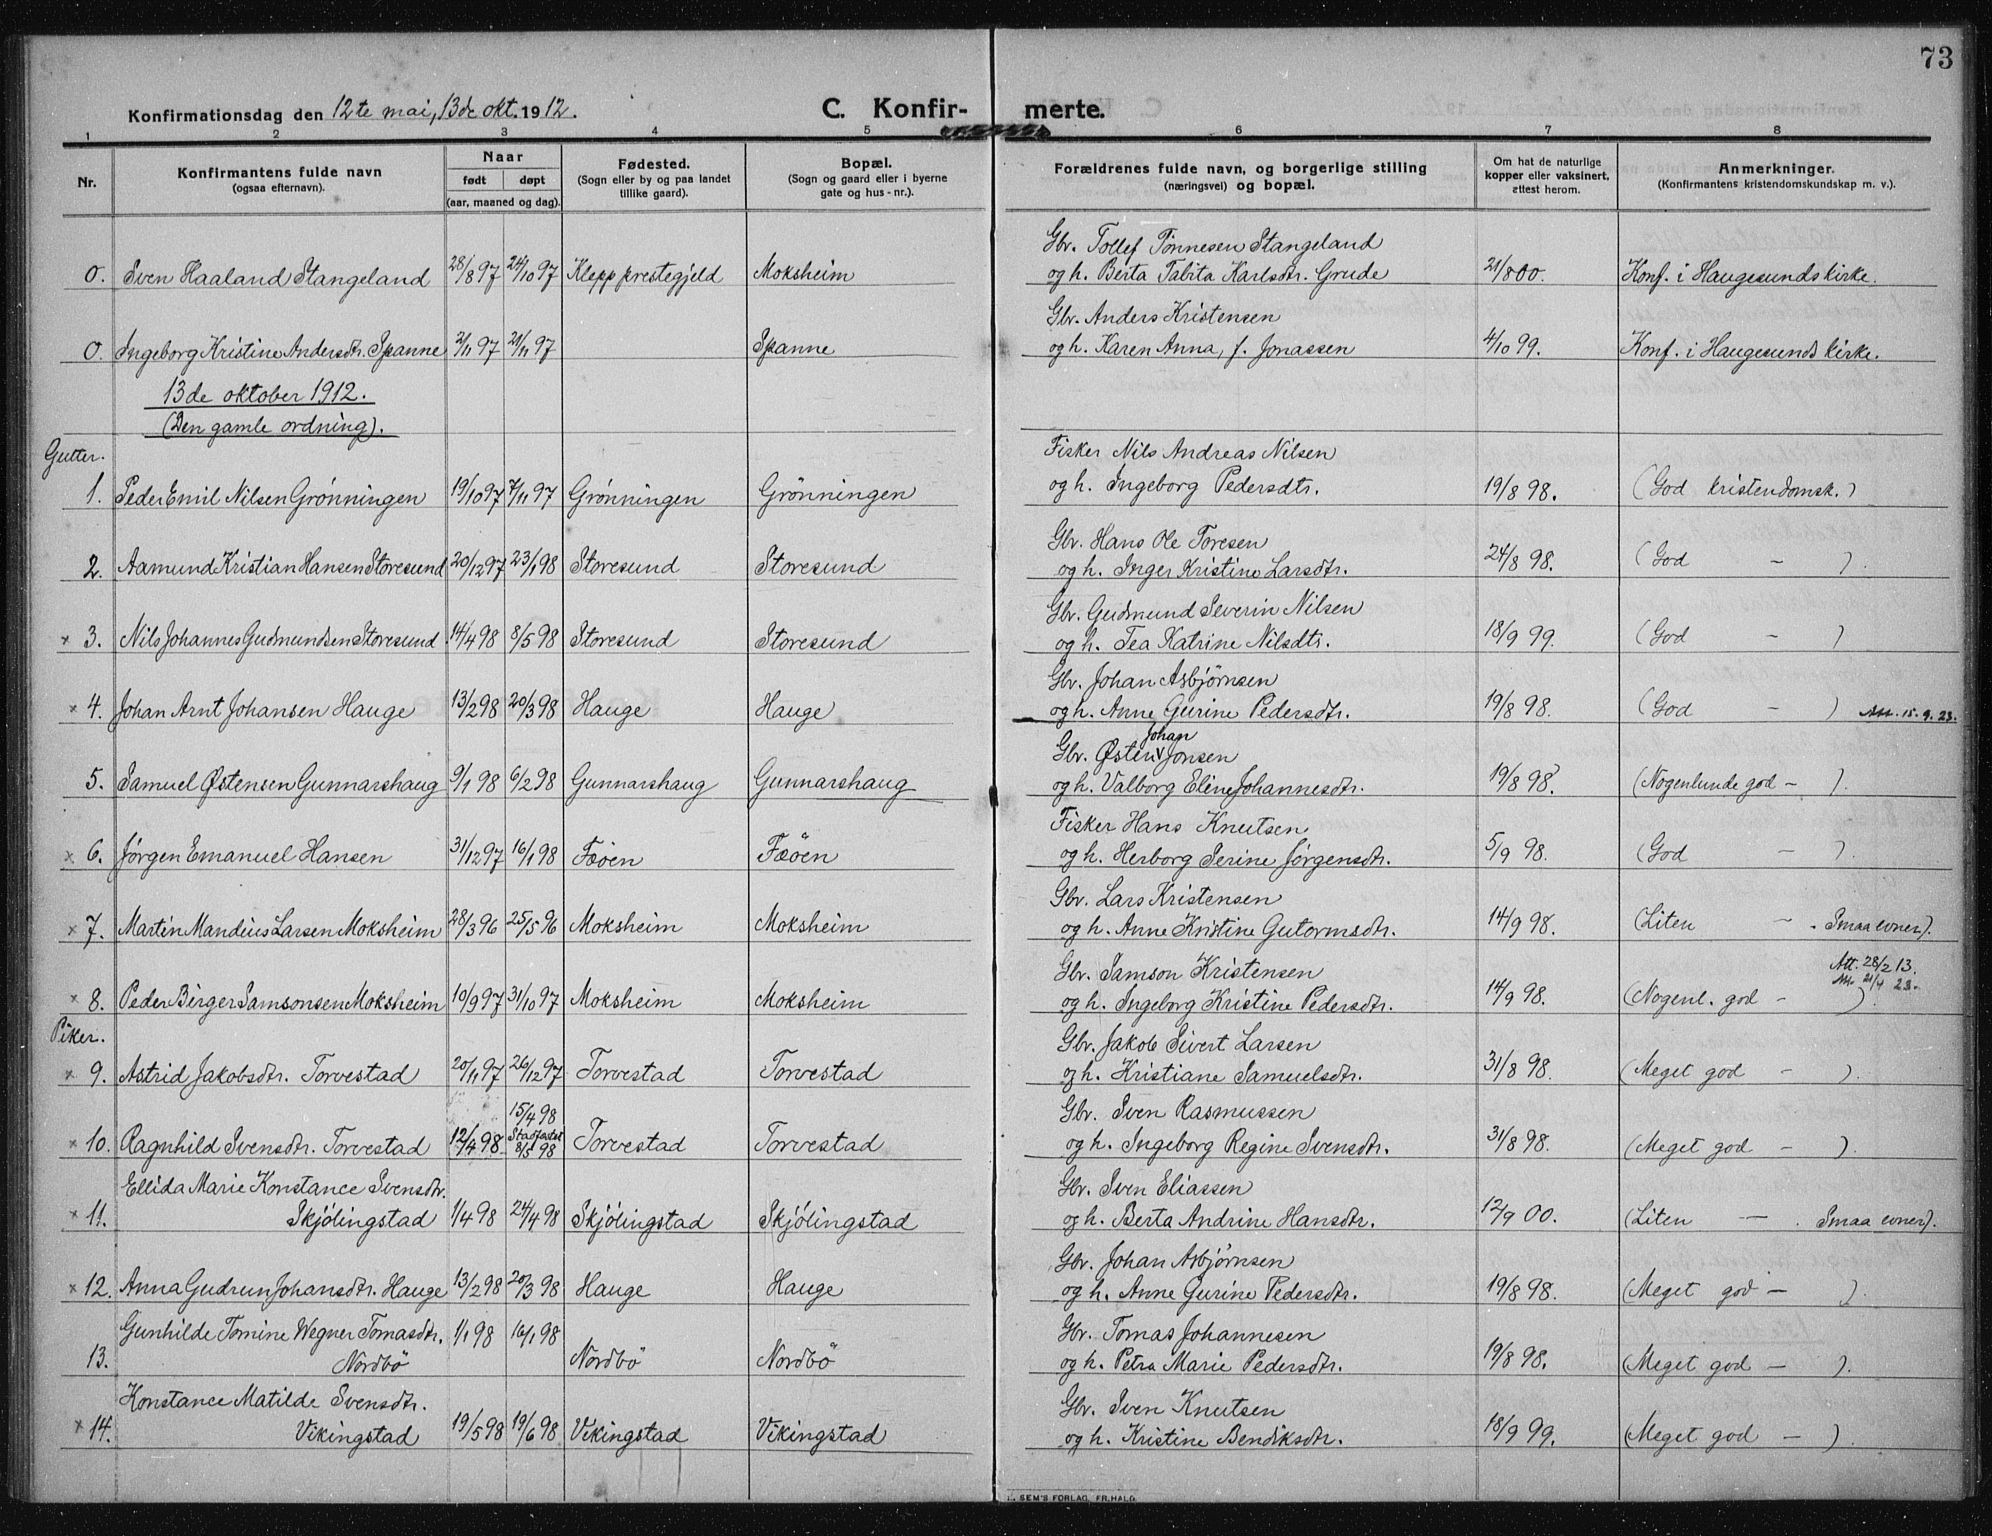 73
Konfirmationsdag den 12te mai, 13de okt. 1912. C. Konfirmerte.
1 2 3 4 5 6 7 8
Nr. Konfirmantens fulde navn (ogsaa efternavn). Naar født døpt (aar, maaned og dag). Fødested. (Sogn eller by og paa landet tillike gaard). Bopæl. (Sogn og gaard eller i byerne gate og hus-nr.). Forældrenes fulde navn, og borgerlige stilling (næringsvei) og bopæl. Om hat de naturlige kopper eller vaksinert, attest herom. Anmerkninger. (Konfirmantens kristendomskundskap m. v.).
Gbr. Tollef Tönnesen Stangeland
0. Sven Haaland Stangeland 28/8 97 24/10 97 Klepp prestegjeld Moksheim og h. Berta Tabita Karlsdtr. Grude 21/8 00. Konf. i Haugesunds kirke.
Gbr. Anders Kristensen
0. Ingeborg Kristine Andersdtr. Spanne 2/11 97 21/11 97 Spanne og h. Karen Anna, f. Jonassen 4/10 99. Konf. i Haugesunds kirke.
13de oktober 1912.
(Den gamle ordning).
Gutter. Fisker Nils Andreas Nilsen
1. Peder Emil Nilsen Grönningen 19/10 97 7/11 97 Grönningen Grönningen og h. Ingeborg Pedersdtr. 19/8 98. (God kristendomsk.)
Gbr. Hans Ole Toresen
2. Aamund Kristian Hansen Storesund 20/12 97 23/1 98 Storesund Storesund og h. Inger Kristine Larsdtr. 24/8 98. (God - ).
Gbr. Gudmund Severin Nilsen
× 3. Nils Johannes Gudmundsen Storesund 14/4 98 8/5 98 Storesund Storesund og h. Tea Katrine Nilsdtr. 18/9 99. (God - )
Gbr. Johan Asbjørnsen
× 4. Johan Arnt Johansen Hauge 13/2 98 20/3 98 Hauge Hauge og h. Anne Gurine Pedersdtr. 19/8 98. (God - ) Att. 15. 9. 23.
Gbr. Østen Johan Jonsen
5. Samuel Østensen Gunnarshaug 9/1 98 6/2 98 Gunnarshaug Gunnarshaug og h. Valborg Eline Johannesdtr. 19/8 98. (Nogenlunde god - ).
Fisker Hans Knutsen
× 6. Jørgen Emanuel Hansen 31/12 97 16/1 98 Fæöen Fæöen og h. Herborg Serine Jørgensdtr. 5/9 98. (God - ).
Gbr. Lars Kristensen
× 7. Martin Mandius Larsen Moksheim 28/3 96 25/5 96 Moksheim Moksheim og h. Anne Kristine Gutormsdtr. 14/9 98. (Liten - . Smaa evner).
Gbr. Samson Kristensen Att. 28/2 13.
Att. 21/4 23.
× 8. Peder Birger Samsonsen Moksheim 10/9 97 31/10 97 Moksheim Moksheim og h. Ingeborg Kristine Pedersdtr. 14/9 98. (Nogenl. god - ).
Piker. Gbr. Jakob Sivert Larsen
× 9. Astrid Jakobsdtr. Torvestad 20/11 97 26/12 97 Torvestad Torvestad og h. Kristiane Samuelsdtr. 31/8 98. (Meget god - ).
15/4 98 Gbr. Sven Rasmussen
× 10. Ragnhild Svensdtr. Torvestad 12/4 98 Stadfæstet 8/5 98 Torvestad Torvestad og h. Ingeborg Regine Svensdtr. 31/8 98. (Meget god - ).
Ellida Marie Konstance Svensdtr. Gbr. Sven Eliassen
× 11. Skjölingstad 1/4 98 24/4 98 Skjölingstad Skjölingstad og h. Berta Andrine Hansdtr. 12/9 00. (Liten - . Smaa evner).
Gbr. Johan Asbjørnsen
× 12. Anna Gudrun Johansdtr. Hauge 13/2 98 20/3 98 Hauge Hauge og h. Anne Gurine Pedersdtr. 19/8 98. (Meget god - ).
Gunhilde Tomine Wegner Tomasdtr. 1/1 98 16/1 98 Gbr. Tomas Johannesen
13. Nordbö Nordbö Nordbö og h. Petra Marie Pedersdtr. 19/8 98. (Meget god - ).
Konstance Matilde Svensdtr. Gbr. Sven Knutsen
× 14. Vikingstad 19/5 98 19/6 98 Vikingstad Vikingstad og h. Kristine Bendiksdtr. 18/9 99. (Meget god - ).
SEM'S FORLAG, FR.HALD.